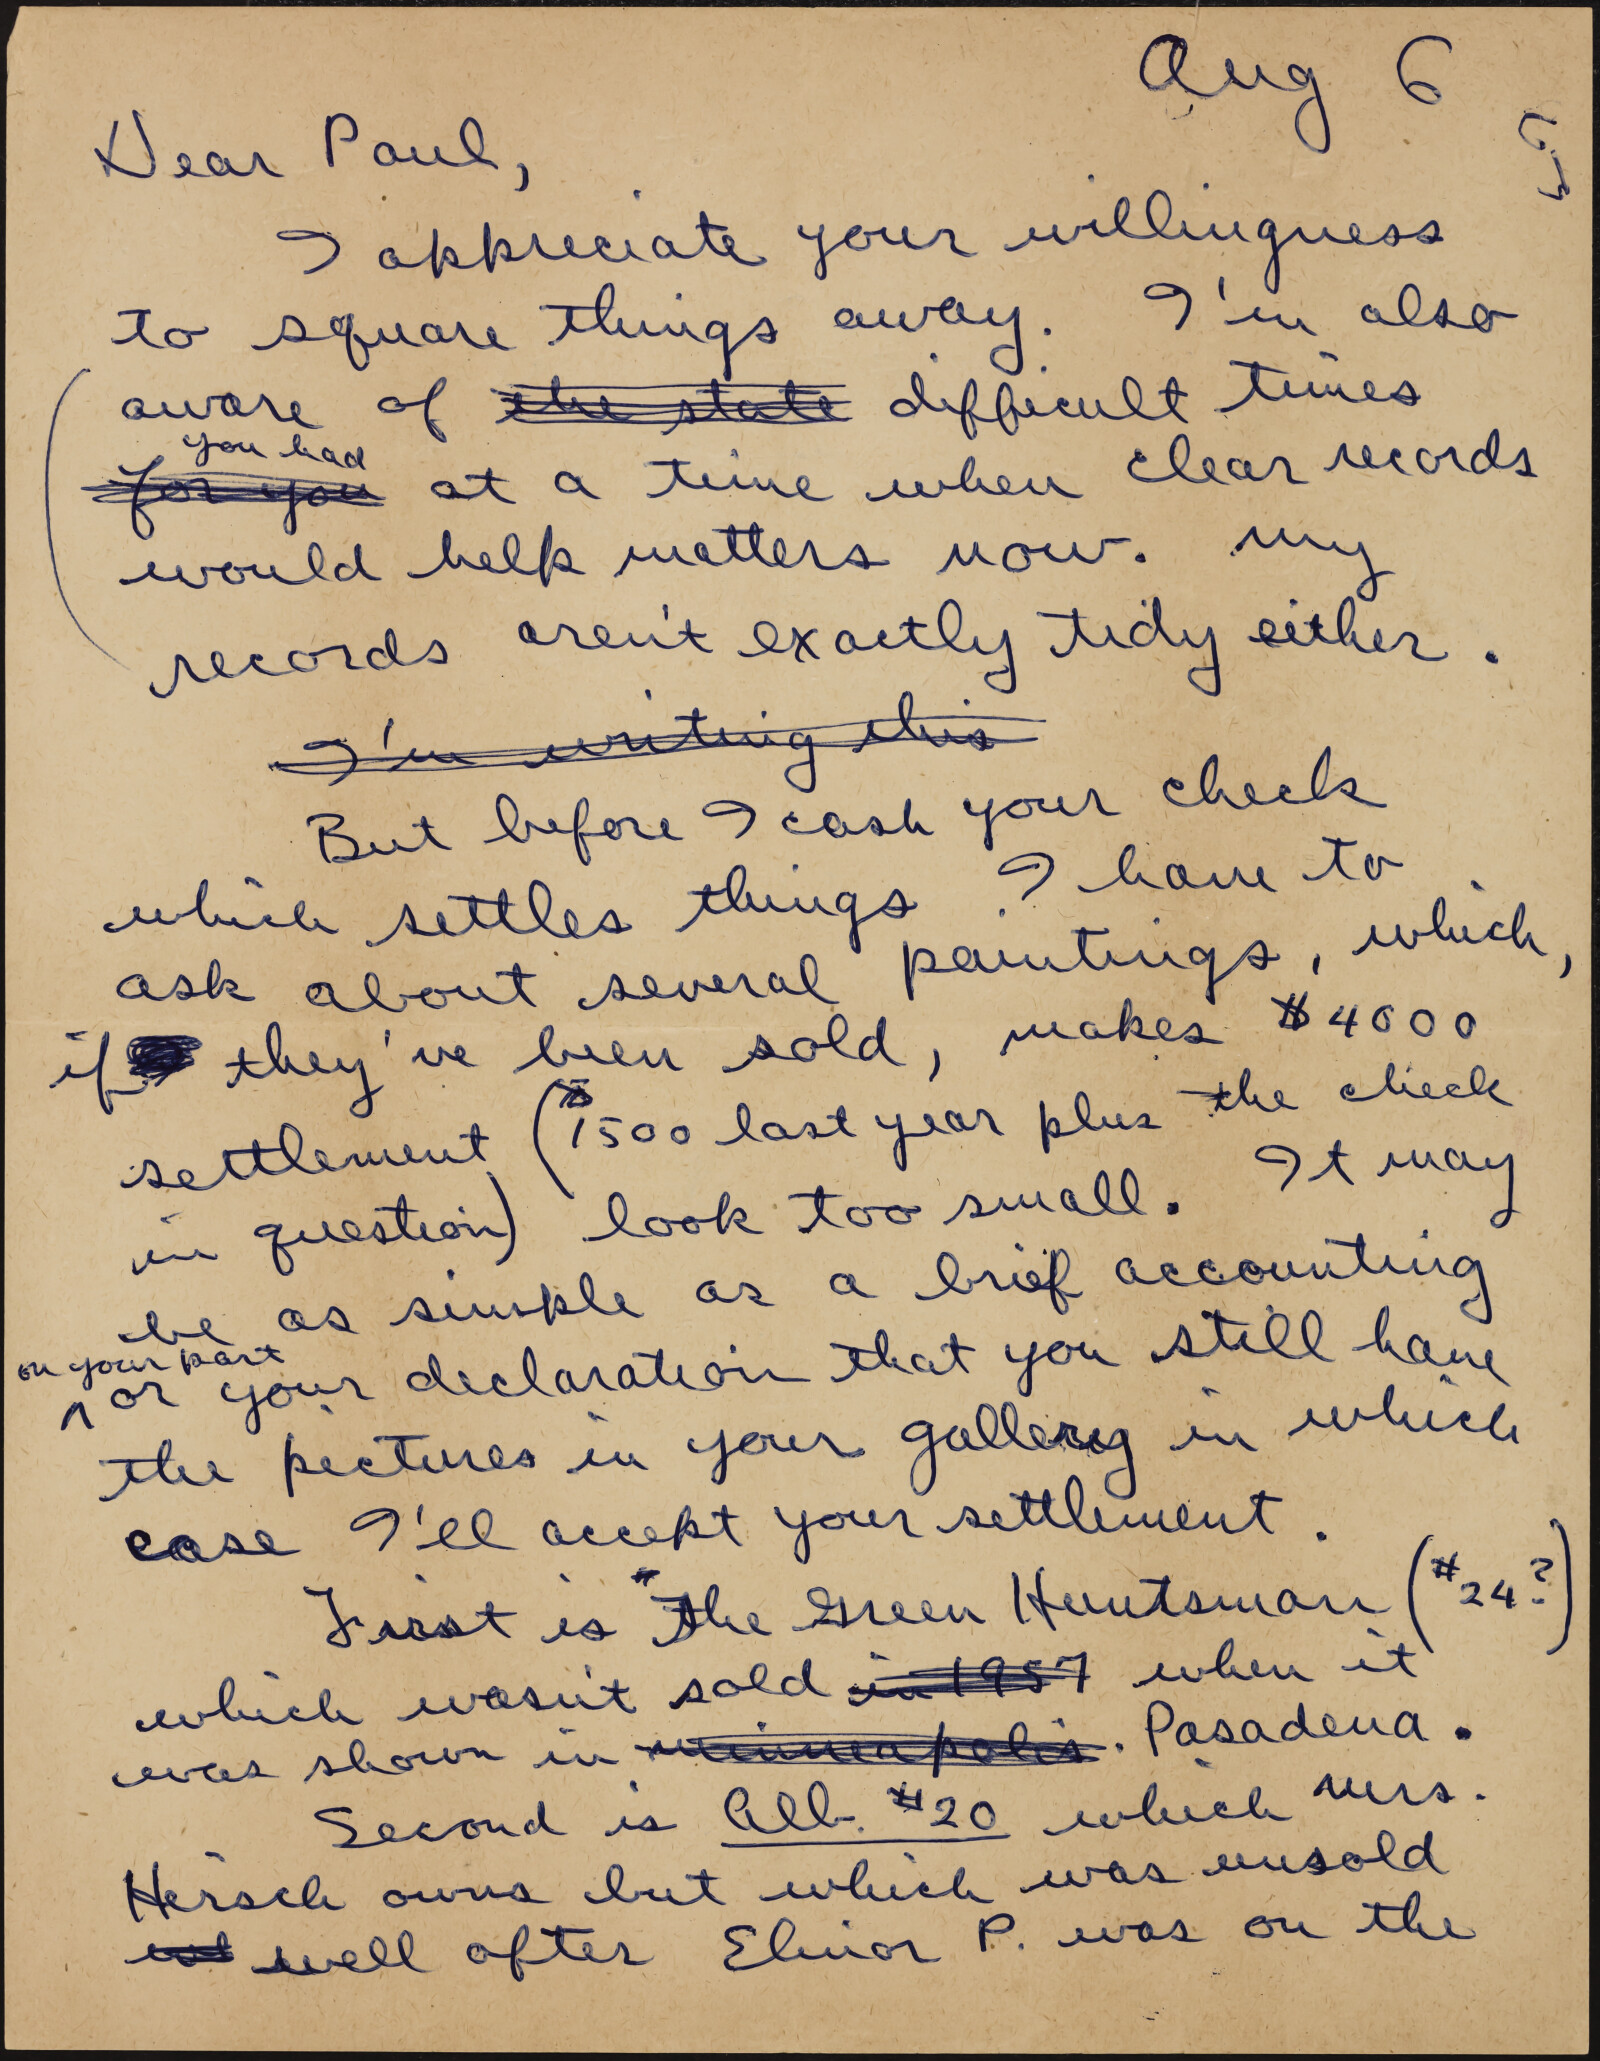 Aug 6
Dear Paul,
I appreciate your willingness
to square things away. I'm also
aware of the state difficult times
you had
for you at a time when clear records
would help matters now. My
records aren't exactly tidy either.
I'm writing this
But before I cash your check
which settles things I have to
ask about several paintings, which,
if they've been sold, makes $4000
settlement ($1500 last year plus the check
in question) look too small. It may
be as simple as a brief accounting
on your part
^ or your declaration that you still have
the pictures in your gallery in which
case I'll accept your settlement.
First is "The Green Huntsman (#24?)
which wasn't sold in 1957 when it
was shown in Minneapolis. Pasadena.
Second is Alb. #20 which Mrs.
Hirsch owns but which was unsold
well after Elinor P. was on the